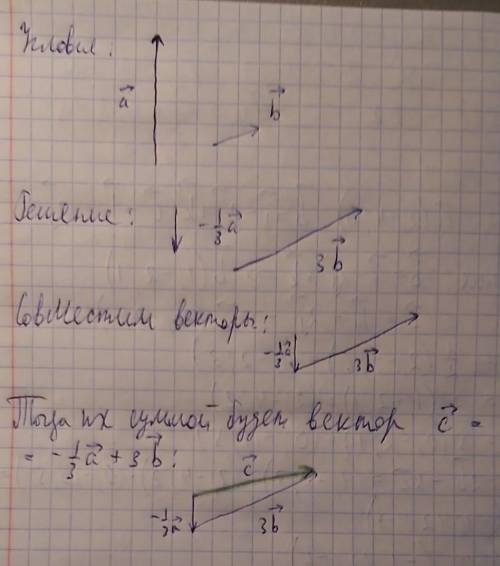 Условие:
$\vec{a}$
$\vec{b}$
Решение:
$-\frac{1}{3}\vec{a}$
$3\vec{b}$
Совместим векторы:
$-\frac{1}{3}\vec{a}$
$3\vec{b}$
Тогда их суммой будет вектор $\vec{c}$ =
= $-\frac{1}{3}\vec{a} + 3\vec{b}$:
$\vec{c}$
$-\frac{1}{3}\vec{a}$
$3\vec{b}$